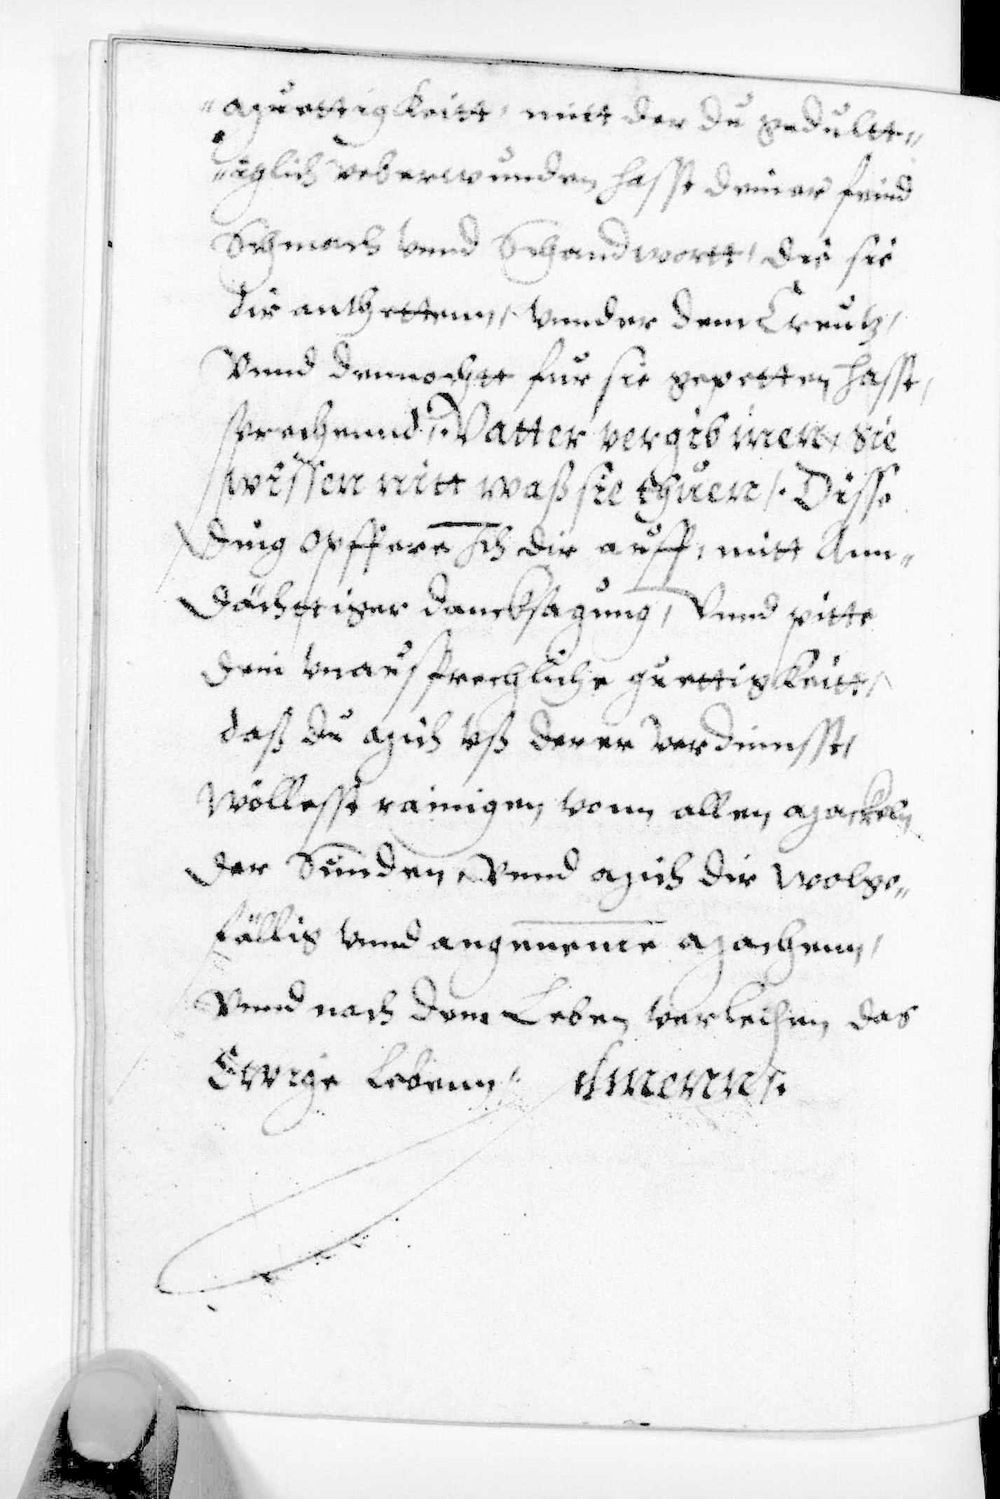 „Muettigkeitt, mitt der du gedultt„
„iglich veberwunden hasst deiner feind
Schmach vnnd Schandwortt, die sie
dir anthetten,, vnnder dem Creutz,
Vnnd dennochtt fur sie gepetten hasst,
sprechennd,. Vatter vergib inen, sie
wissen nitt waß sie thuen,. Disse
ding opffere Ich dir auff, mitt Ann„
dächttiger dancksagung, Vnnd pitte
dein vnaussprechliche guettigkeitt,
daß du mich vß derer verdiensst,
Wöllesst rainigen vonn allen mackeln
der Sunden, Vnnd mich dir wolge„
fällig vnnd angeneme machenn,
Vnnd nach dem Leben verleihen das
Ewige Lebenn,. Amenn,.